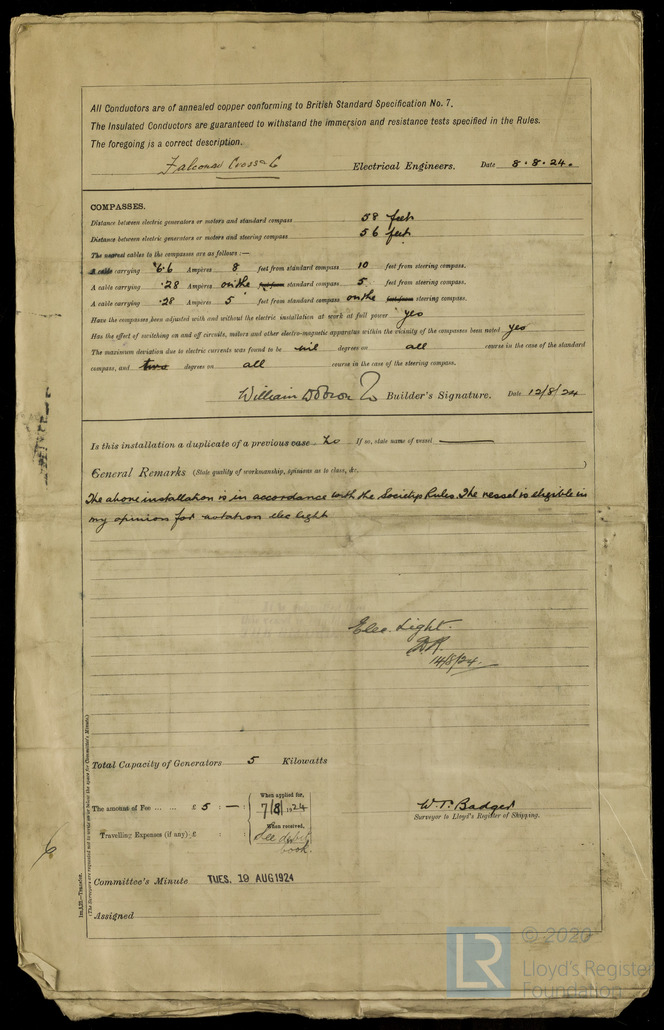 All Conductors are of annealed copper conforming to British Standard Specification No. 7.
The Insulated Conductors are guaranteed to withstand the immersion and resistance tests specified in the Rules.
The foregoing is a correct description.
Falconar Cross & Co Electrical Engineers. Date 8.8.24.
COMPASSES.
Distance between electric generators or motors and standard compass 58 feet
Distance between electric generators or motors and steering compass 56 feet
The nearest cables to the compasses are as follows:—
A cable carrying 6.6 Ampères 8 feet from standard compass 10 feet from steering compass.
A cable carrying .28 Ampères on the feet from standard compass 5 feet from steering compass.
A cable carrying .28 Ampères 5 feet from standard compass on the feet from steering compass.
Have the compasses been adjusted with and without the electric installation at work at full power yes
Has the effect of switching on and off circuits, motors and other electro-magnetic apparatus within the vicinity of the compasses been noted yes
The maximum deviation due to electric currents was found to be nil degrees on all course in the case of the standard
compass, and degrees on all course in the case of the steering compass.
William Dobson & Co Builder's Signature. Date 12/8/24
Is this installation a duplicate of a previous case No If so, state name of vessel —
General Remarks (State quality of workmanship, opinions as to class, &c. )
The above installation is in accordance with the Societys Rules. The vessel is eligible in
my opinion for notation elec light
Elec. Light.
14/8/24.
Total Capacity of Generators 5 Kilowatts
The amount of Fee ... ... £ 5 : — :
When applied for,
7/8/1924
When received,
Travelling Expenses (if any) £ : :
See debit
book.
W. T. Badger
Surveyor to Lloyd's Register of Shipping.
Committee's Minute TUES. 19 AUG 1924
Assigned
Transfer.
(The Surveyors are requested not to write on or below the space for Committee's Minute.)
LR
© 2020
Lloyd's Register
Foundation